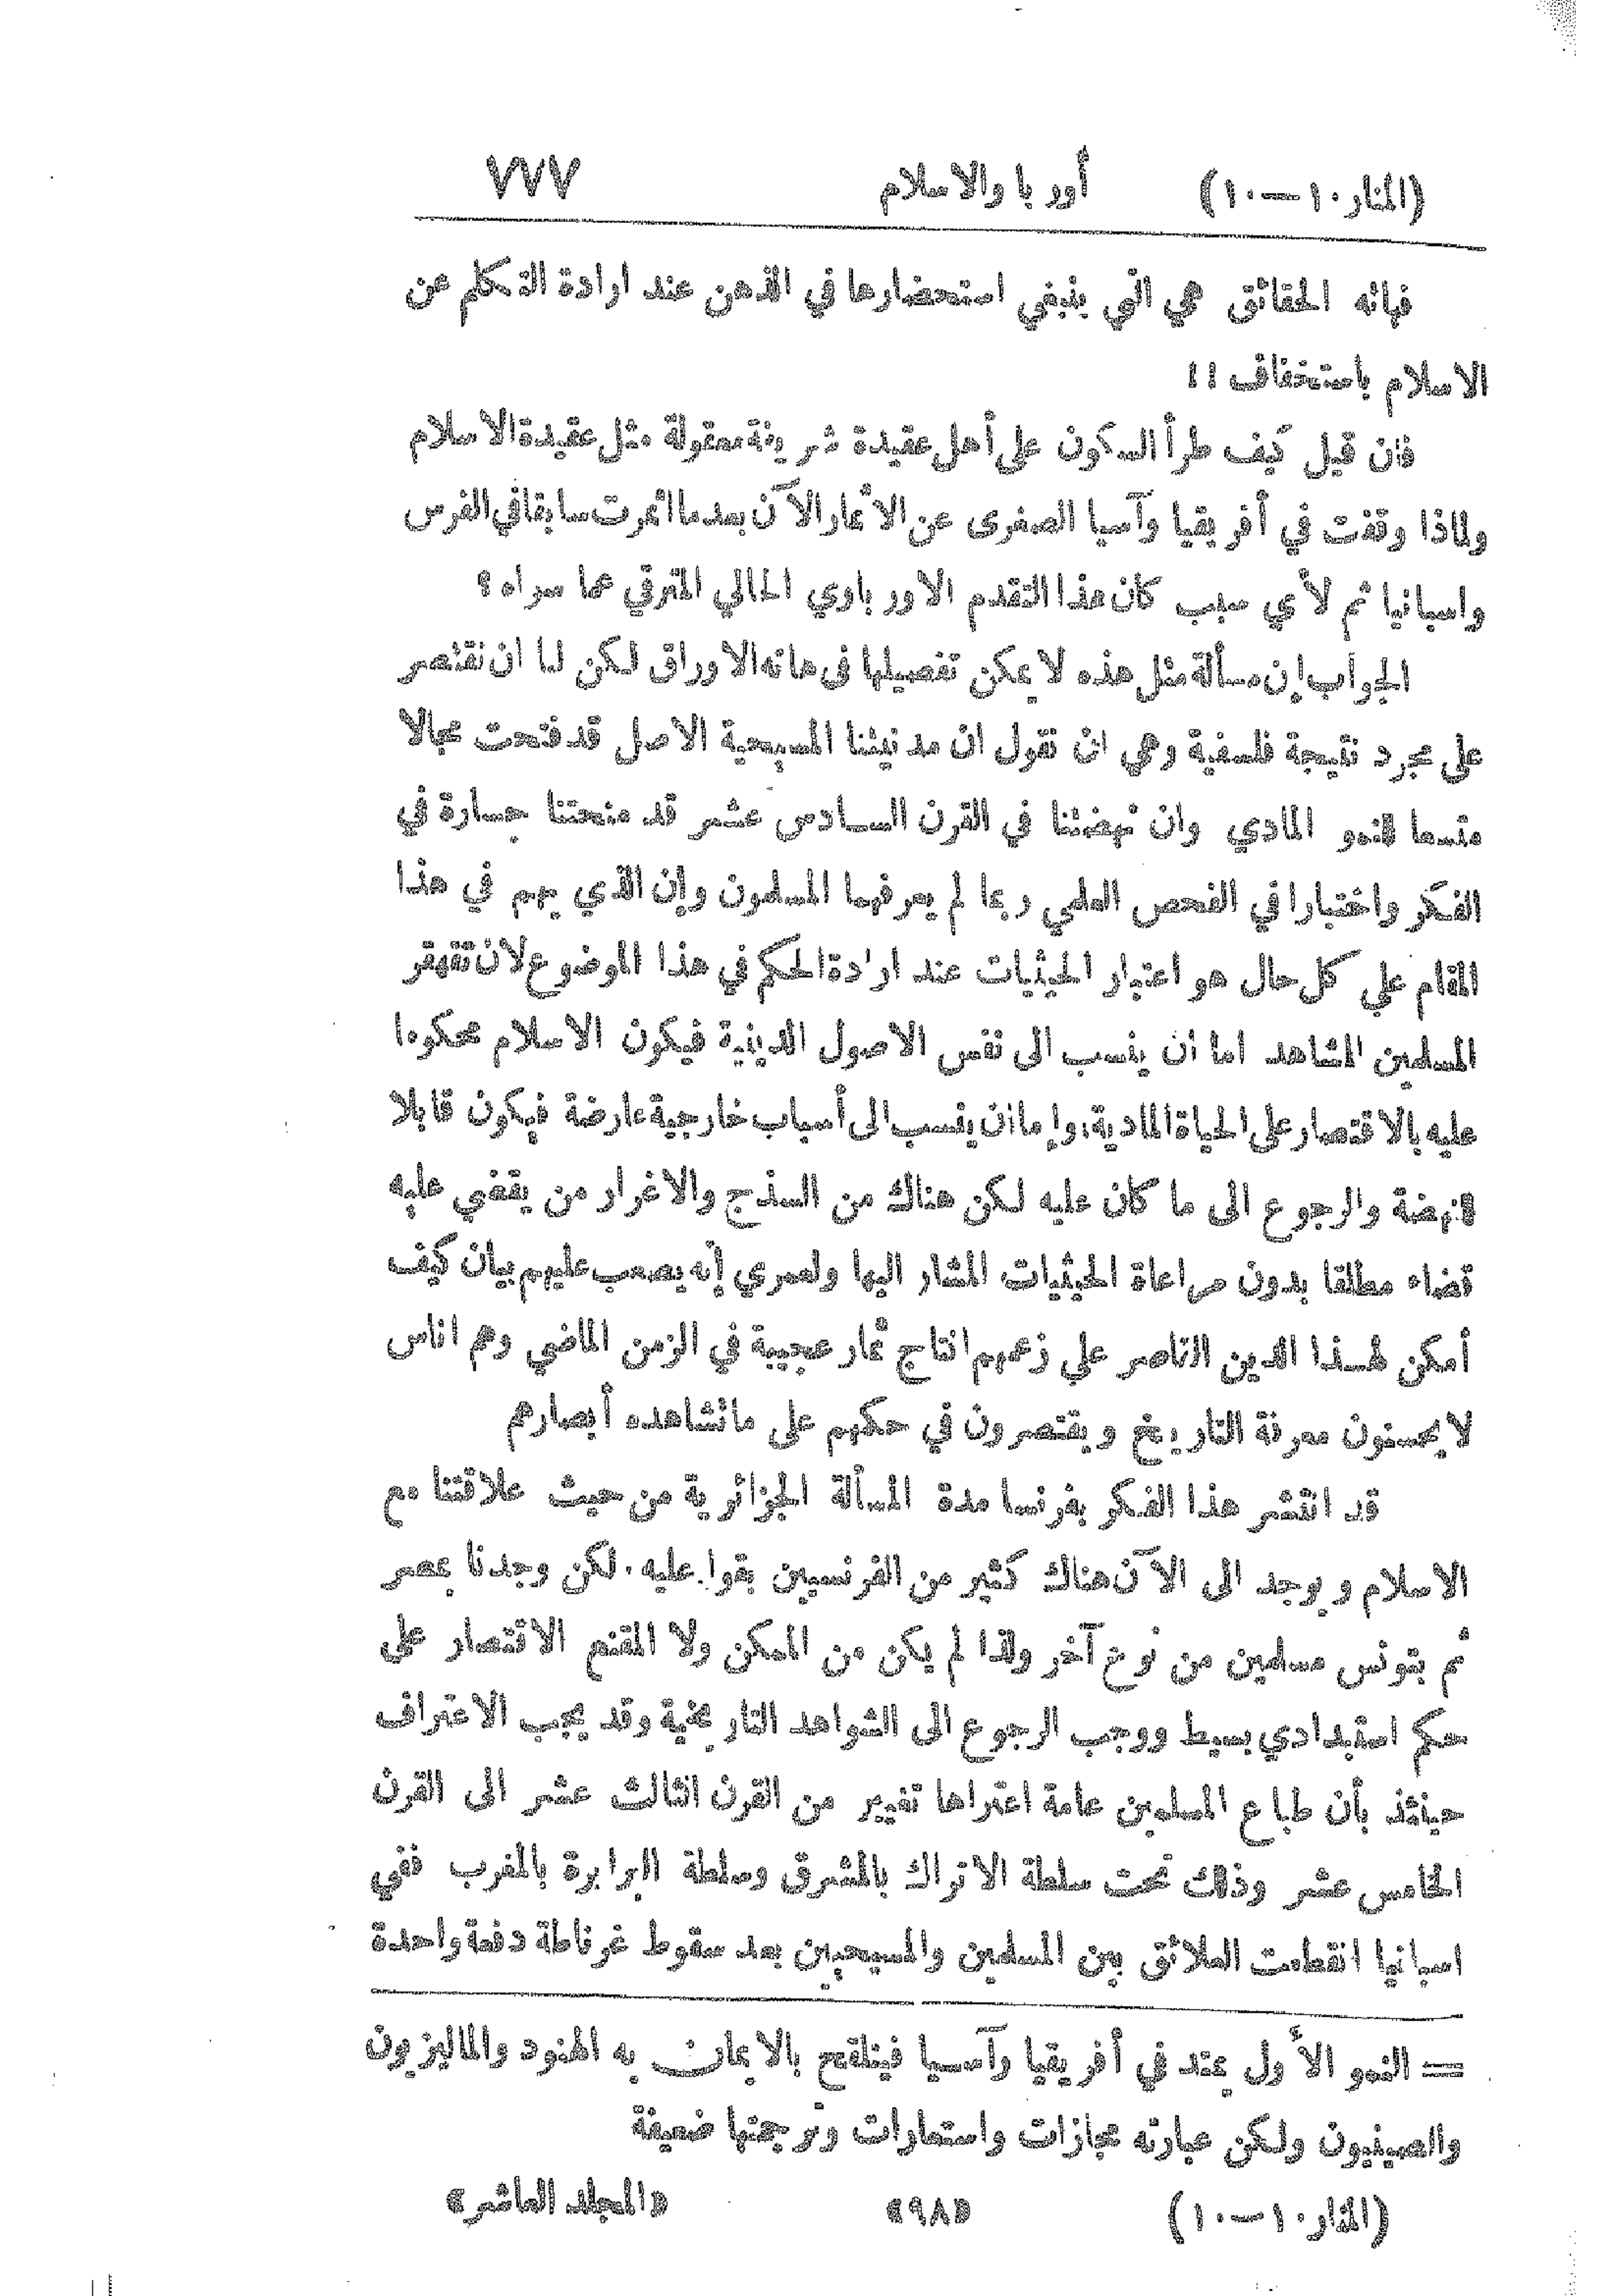 (المنار ١٠ — ١٠) أوربا والاسلام ٧٧٧
فهاته الحقائق هي التي ينبغي استحضارها في الذهن عند ارادة التكلم عن
الاسلام باستخفاف !!
فان قيل كيف طرأ السكون على أهل عقيدة شريفة معقولة مثل عقيدة الاسلام
ولماذا وقفت في أفريقيا وآسيا الصغرى عن الاثمار الآن بعد ما اثمرت سابقا في الفرس
واسبانيا ثم لأي سبب كان هذا التقدم الاورباوي الحالي المترقي عما سواه ؟
الجواب إن مسألة مثل هذه لا يمكن تفصيلها في هاته الاوراق لكن لنا ان نقتصر
على مجرد نتيجة فلسفية وهي ان نقول ان مدنيتنا المسيحية الاصل قد فتحت مجالا
متسعا للنمو المادي وان نهضتنا في القرن السادس عشر قد منحتنا جسارة في
الفكر واختبارا في الفحص العلمي ربما لم يعرفهما المسلمون وإن الذي يهم في هذا
المقام على كل حال هو اعتبار الحيثيات عند ارادة الحكم في هذا الموضوع لان تقهقر
المسلمين المشاهد اما ان ينسب الى نفس الاصول الدينية فيكون الاسلام محكوما
عليه بالاقتصار على الحياة المادية، وإما ان ينسب الى أسباب خارجية عارضة فيكون قابلا
للنهضة والرجوع الى ما كان عليه لكن هناك من السذج والاغرار من يقضي عليه
قضاء مطلقا بدون مراعاة الحيثيات المشار اليها ولعمري إنه يصعب عليهم بيان كيف
أمكن لهذا الدين القاصر على زعمهم انتاج ثمار عجيبة في الزمن الماضي وهم اناس
لا يحسنون معرفة التاريخ ويقتصرون في حكمهم على ما تشاهده أبصارهم
قد انتشر هذا الفكر بفرنسا مدة المسألة الجزائرية من حيث علاقتنا مع
الاسلام ويوجد الى الآن هناك كثير من الفرنسيين بقوا عليه . لكن وجدنا بمصر
ثم بتونس مسلمين من نوع آخر ولذا لم يكن من الممكن ولا المقنع الاقتصار على
حكم استبدادي بسيط ووجب الرجوع الى الشواهد التاريخية وقد يجب الاعتراف
حينئذ بأن طباع المسلمين عامة اعتراها تغيير من القرن الثالث عشر الى القرن
الخامس عشر وذلك تحت سلطة الاتراك بالمشرق وسلطة البرابرة بالمغرب ففي
اسبانيا انقطعت العلائق بين المسلمين والمسيحيين بعد سقوط غرناطة دفعة واحدة
= النمو الأول يمتد في أفريقيا وآسيا فيتلقح بالايمان به الهنود والماليزيون
والصينيون ولكن عبارته مجازات واستعارات وترجمتها ضعيفة
(المنار ١٠ — ١٠) «٩٨» «المجلد العاشر»